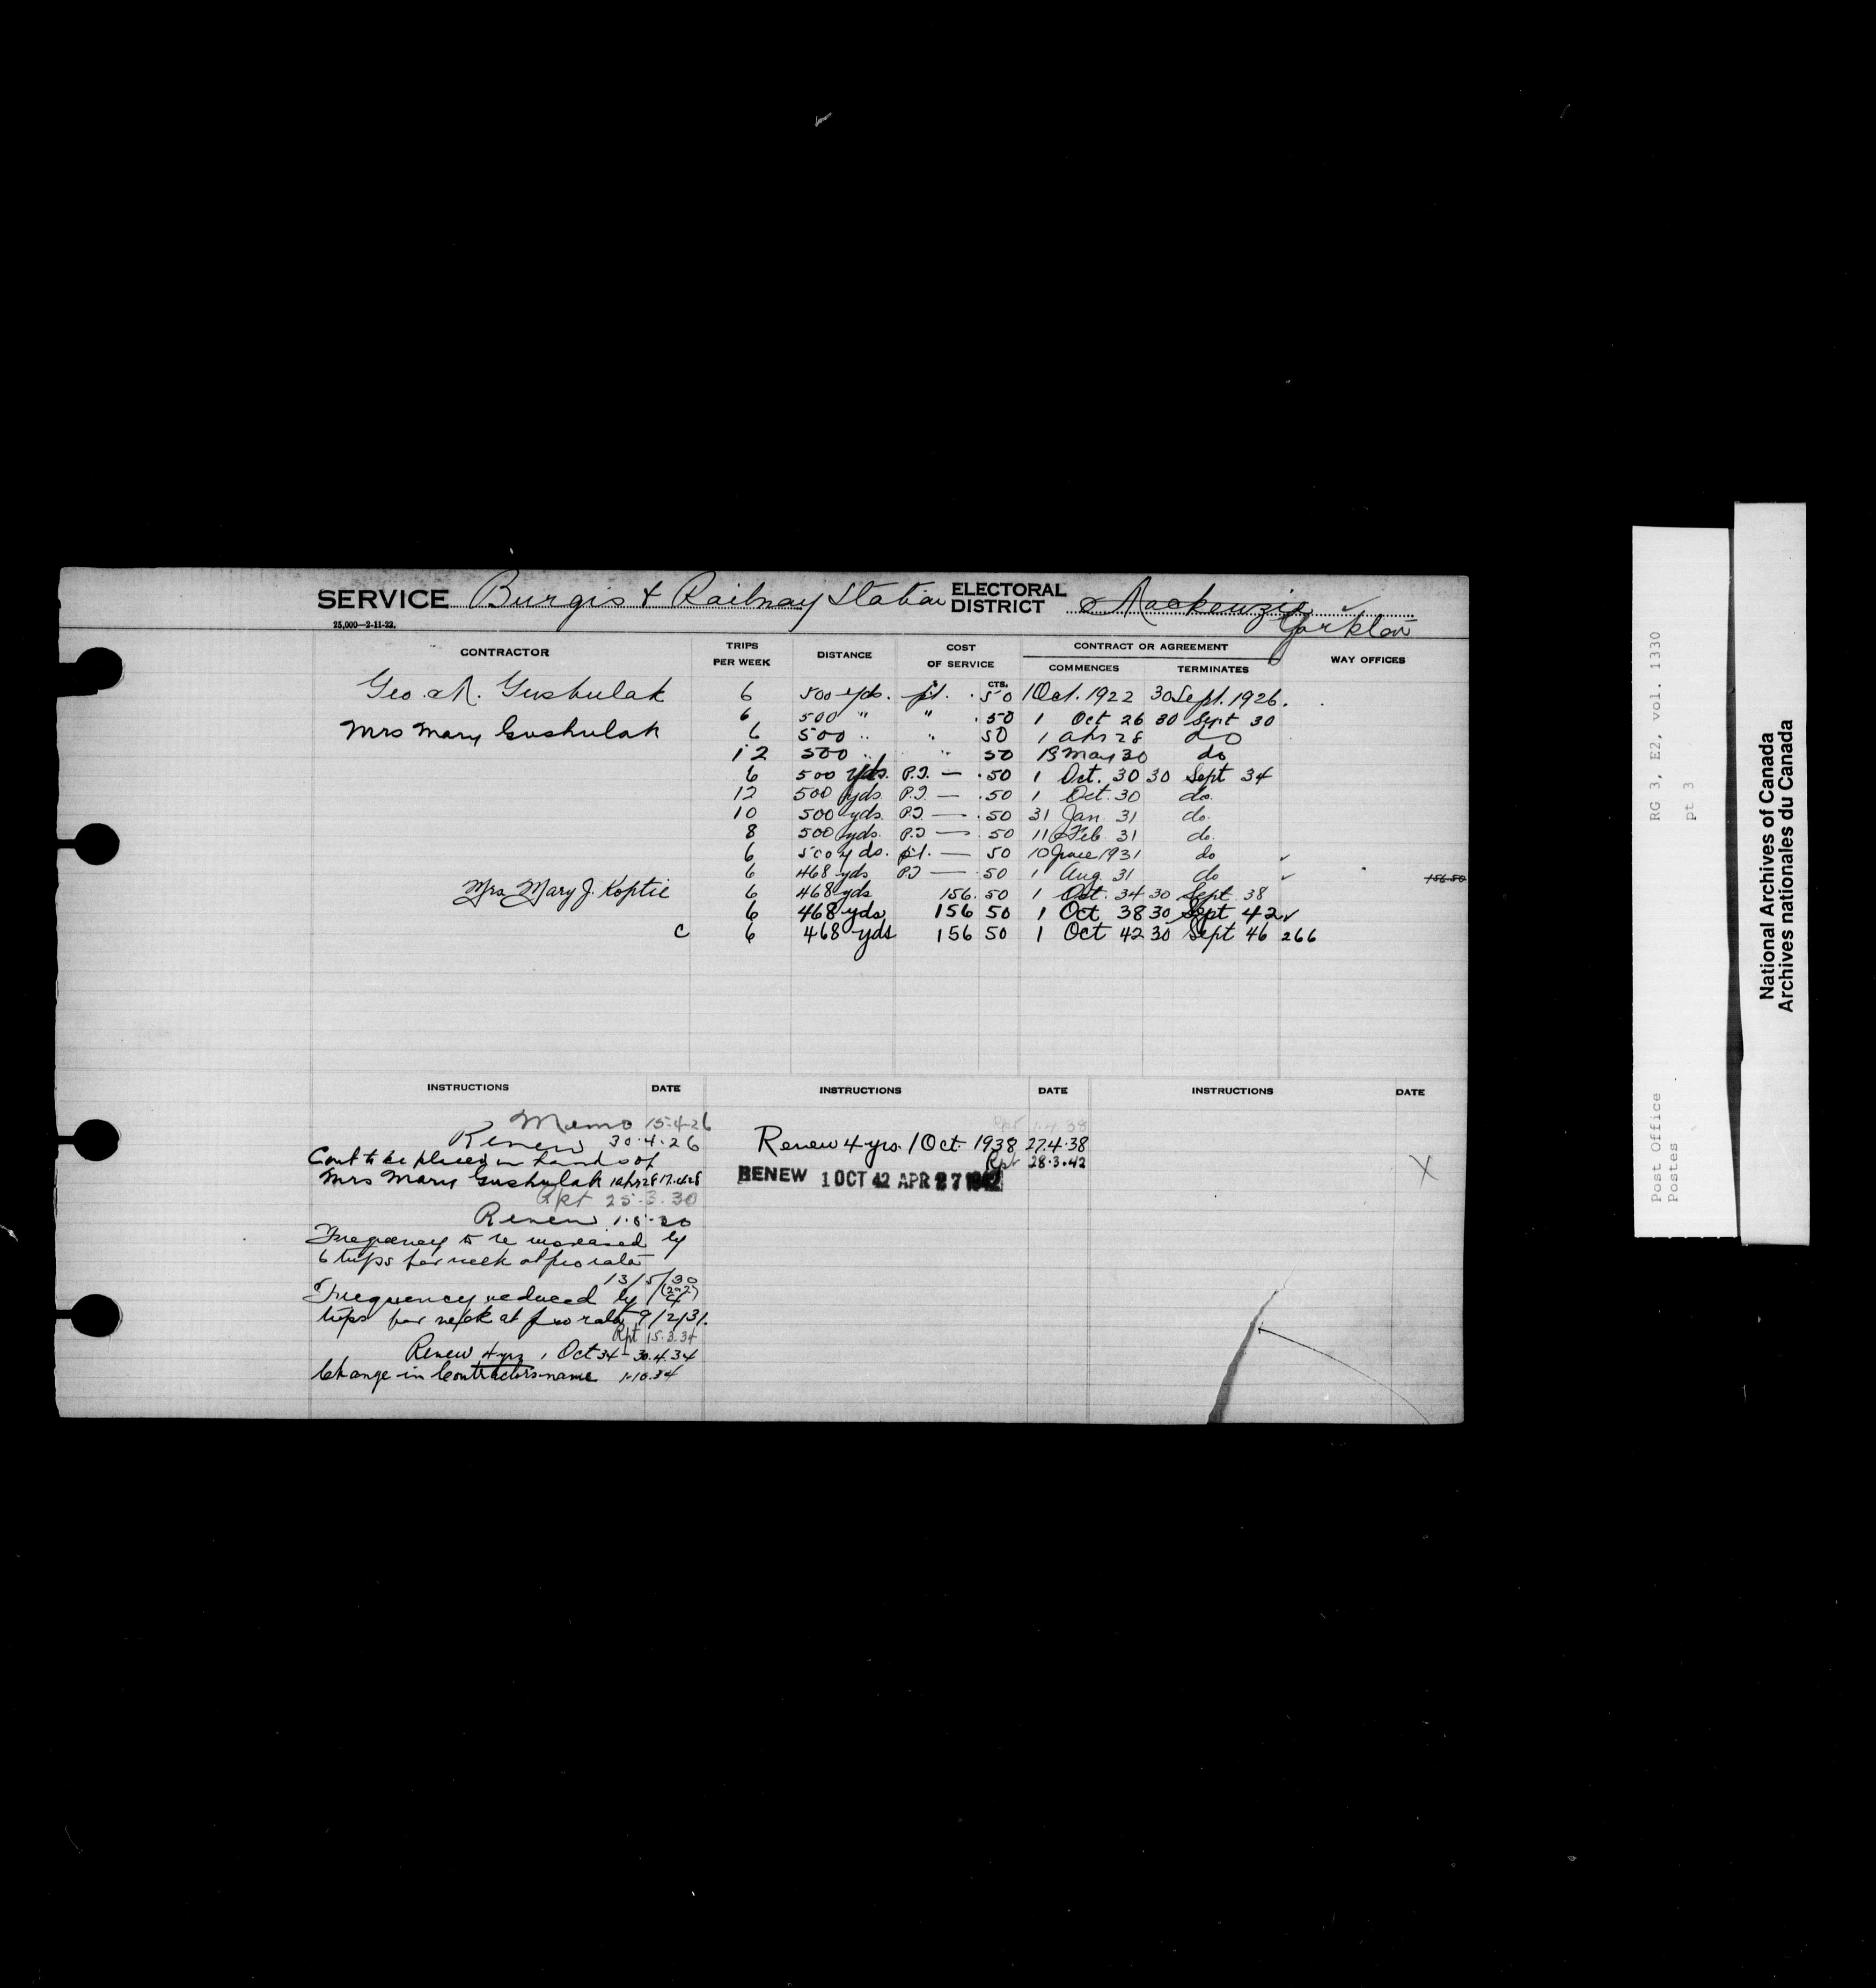 SERVICE Burgis & Railway Station ELECTORAL DISTRICT Mackenzie ✓
Yorkton
25,000—2-11-22.
CONTRACTOR TRIPS PER WEEK DISTANCE COST OF SERVICE CONTRACT OR AGREEMENT COMMENCES TERMINATES WAY OFFICES
$ CTS.
Geo. N. Gushulak 6 500 yds. p.t. .50 1 Oct. 1922 30 Sept. 1926.
6 500 " " .50 1 Oct 26 30 Sept 30
Mrs Mary Gushulak 6 500 " " 50 1 Apr 28 do
12 500 " " 50 19 May 30 do
6 500 yds. P.T. — .50 1 Oct. 30 30 Sept 34
12 500 yds P.T. — .50 1 Oct. 30 do.
10 500 yds. P.T. — .50 31 Jan. 31 do.
8 500 yds. P.T. — 50 11 Feb. 31 do.
6 500 yds. p.t. — 50 10 June 1931 do ✓
6 468 yds PT — .50 1 Aug. 31 do ✓ 156.50
Mrs. Mary J. Koptie 6 468 yds 156.50 1 Oct. 34 30 Sept. 38
6 468 yds 156 50 1 Oct 38 30 Sept 42 ✓
C 6 468 yds 156 50 1 Oct 42 30 Sept 46 266
INSTRUCTIONS DATE INSTRUCTIONS DATE INSTRUCTIONS DATE
Memo 15-4-26
Renew 30.4.26
Cont to be placed in hands of
Mrs Mary Gushulak 1 Apr 28 17.4.28
Rpt 25.3.30
Renew 1.5.30
Frequency to be increased by
6 trips per week at pro rata
13/5/30
Frequency reduced by 4
trips per week at pro rata 9/2/31.
Rpt 15.3.34
Renew 4 yrs 1 Oct 34 - 30.4.34
Change in Contractors name 1.10.34
Rpt 1.4.38
Renew 4 yrs. 1 Oct. 1938 27.4.38
Rpt 28.3.42
RENEW 1 OCT 42 APR 27 1942
X
Post Office
Postes
RG 3, E2, vol. 1330
pt 3
National Archives of Canada
Archives nationales du Canada